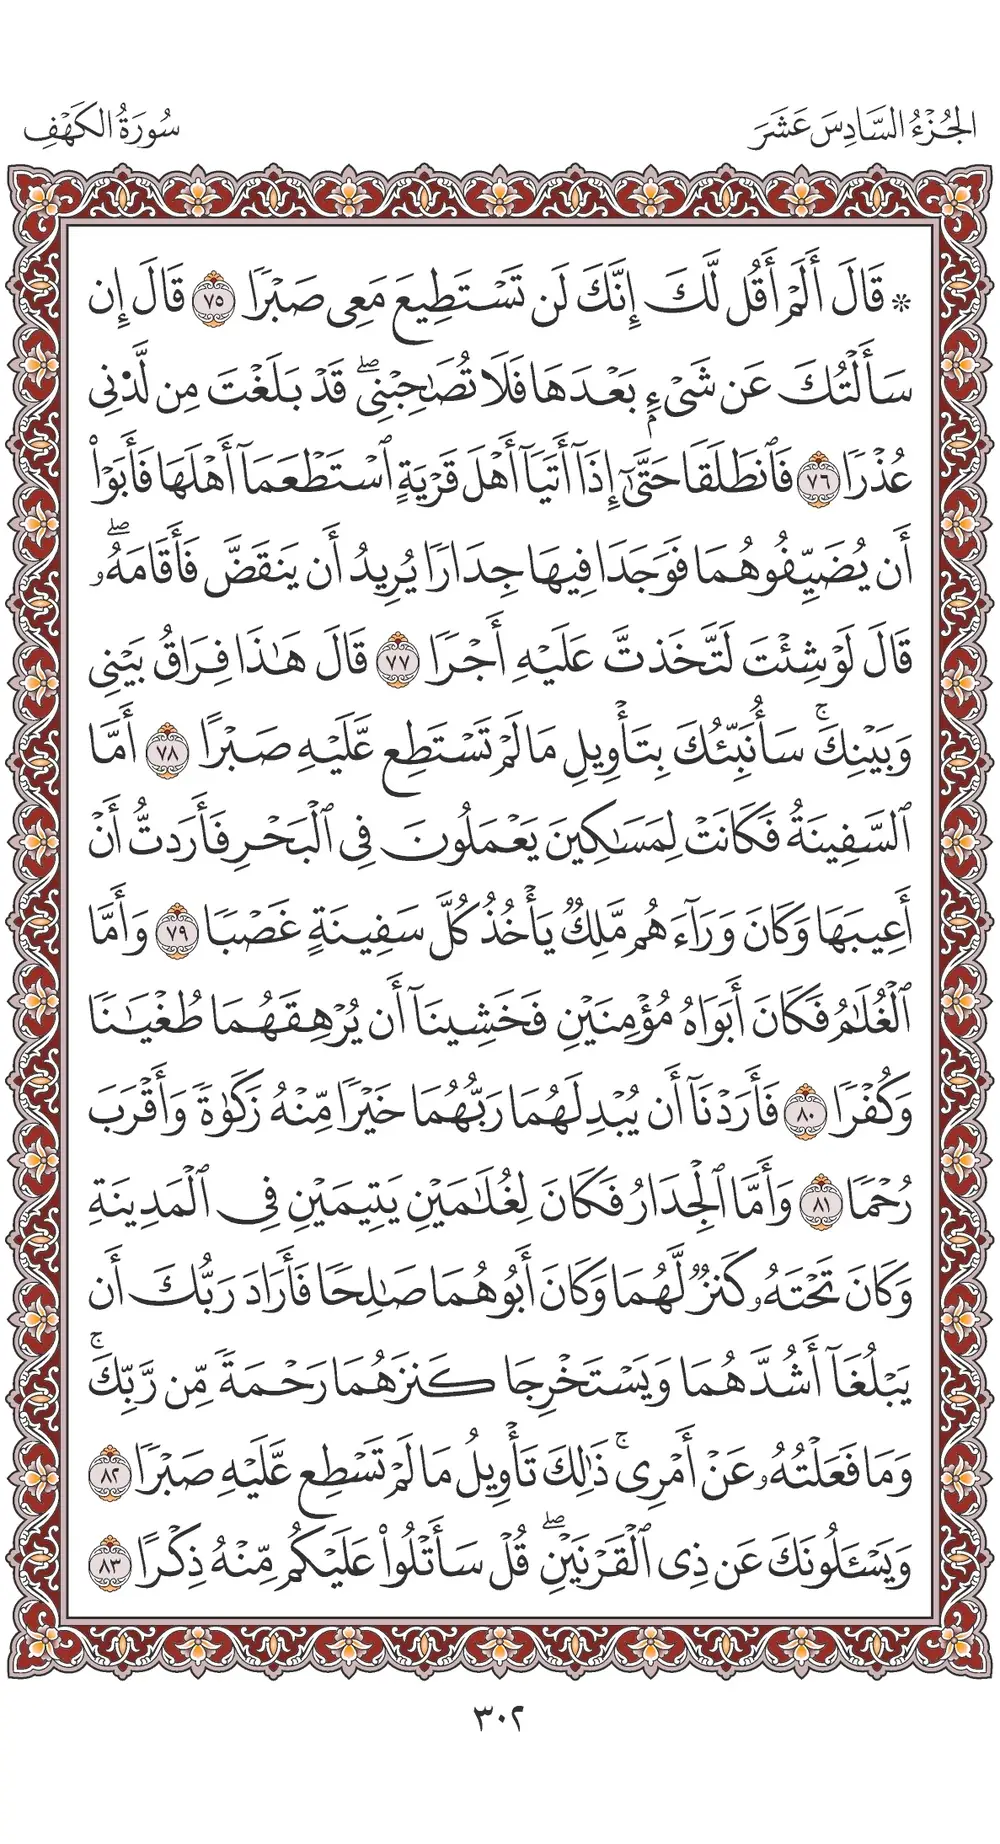 الجُزْءُ السَّادِسَ عَشَرَ
سُورَةُ الكَهْفِ
۞ قَالَ أَلَمْ أَقُل لَّكَ إِنَّكَ لَن تَسْتَطِيعَ مَعِىَ صَبْرًا ٧٥ قَالَ إِن
سَأَلْتُكَ عَن شَىْءٍۭ بَعْدَهَا فَلَا تُصَٰحِبْنِىۖ قَدْ بَلَغْتَ مِن لَّدُنِّى
عُذْرًا ٧٦ فَٱنطَلَقَا حَتَّىٰٓ إِذَآ أَتَيَآ أَهْلَ قَرْيَةٍ ٱسْتَطْعَمَآ أَهْلَهَا فَأَبَوْا۟
أَن يُضَيِّفُوهُمَا فَوَجَدَا فِيهَا جِدَارًا يُرِيدُ أَن يَنقَضَّ فَأَقَامَهُۥۖ
قَالَ لَوْ شِئْتَ لَتَّخَذتَّ عَلَيْهِ أَجْرًا ٧٧ قَالَ هَٰذَا فِرَاقُ بَيْنِى
وَبَيْنِكَۚ سَأُنَبِّئُكَ بِتَأْوِيلِ مَا لَمْ تَسْتَطِع عَّلَيْهِ صَبْرًا ٧٨ أَمَّا
ٱلسَّفِينَةُ فَكَانَتْ لِمَسَٰكِينَ يَعْمَلُونَ فِى ٱلْبَحْرِ فَأَرَدتُّ أَنْ
أَعِيبَهَا وَكَانَ وَرَآءَهُم مَّلِكٌ يَأْخُذُ كُلَّ سَفِينَةٍ غَصْبًا ٧٩ وَأَمَّا
ٱلْغُلَٰمُ فَكَانَ أَبَوَاهُ مُؤْمِنَيْنِ فَخَشِينَآ أَن يُرْهِقَهُمَا طُغْيَٰنًا
وَكُفْرًا ٨٠ فَأَرَدْنَآ أَن يُبْدِلَهُمَا رَبُّهُمَا خَيْرًا مِّنْهُ زَكَوٰةً وَأَقْرَبَ
رُحْمًا ٨١ وَأَمَّا ٱلْجِدَارُ فَكَانَ لِغُلَٰمَيْنِ يَتِيمَيْنِ فِى ٱلْمَدِينَةِ
وَكَانَ تَحْتَهُۥ كَنزٌ لَّهُمَا وَكَانَ أَبُوهُمَا صَٰلِحًا فَأَرَادَ رَبُّكَ أَن
يَبْلُغَآ أَشُدَّهُمَا وَيَسْتَخْرِجَا كَنزَهُمَا رَحْمَةً مِّن رَّبِّكَۚ
وَمَا فَعَلْتُهُۥ عَنْ أَمْرِىۚ ذَٰلِكَ تَأْوِيلُ مَا لَمْ تَسْطِع عَّلَيْهِ صَبْرًا ٨٢
وَيَسْـَٔلُونَكَ عَن ذِى ٱلْقَرْنَيْنِۖ قُلْ سَأَتْلُوا۟ عَلَيْكُم مِّنْهُ ذِكْرًا ٨٣
٣٠٢